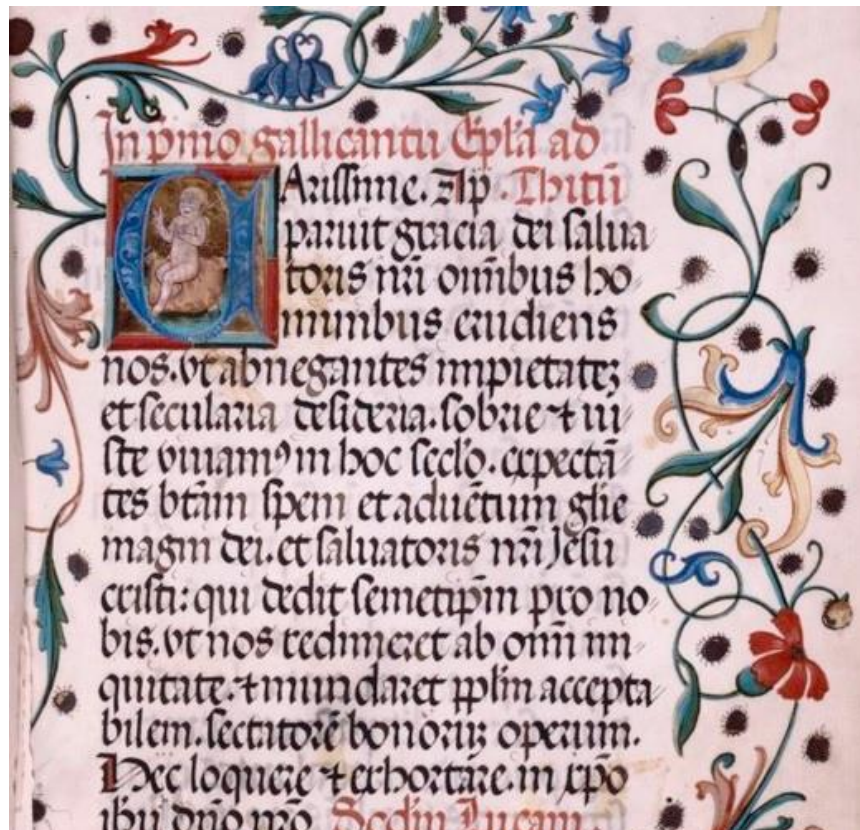 In pımo gallicantu Epl̄a ad
CArissime. Ap̄ Thitū
paruit gracia dei salua
toris nr̄i om̄ibus ho
minibus erudiens
nos. vt abnegantes impietatez
et secularia desideria. sobrie ⁊ iu
ste viuamꝰ in hoc sc̄lo. expectā
tes bt̄am spem et aduētum gl̄ie
magni dei. et saluatoris nr̄i Jesu
cristi: qui dedit semetip̄m pro no
bis. vt nos redimeret ab om̄i ini
quitate. ⁊ mundaret pp̄lm accepta
bilem. sectatorē bonoruꝫ operum.
Hec loquere ⁊ exhortare. in xp̄o
ihu dn̄o nr̄o. Scd̄m Lucam.